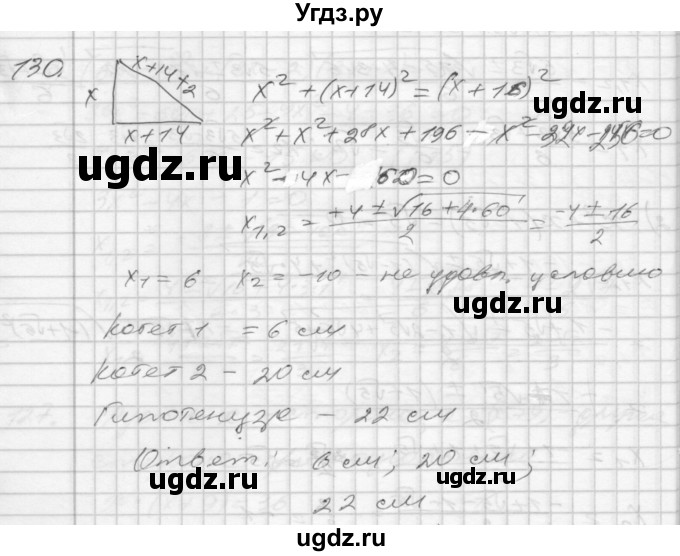 Угдз.ру
130.
x+14+2
x
x+14
x² + (x+14)² = (x+16)²
x² + x² + 28x + 196 - x² - 32x - 256 = 0
x² - 4x - 60 = 0
x₁,₂ = +4 ± √16 + 4·60 / 2 = -4 ± 16 / 2
x₁ = 6 x₂ = -10 - не удовл. условию
Катет 1 = 6 см
Катет 2 - 20 см
Гипотенуза - 22 см
Ответ: 6 см; 20 см;
22 см
ugdz.ru
ugdz.ru
ugdz.ru
ugdz.ru
ugdz.ru
ugdz.ru
ugdz.ru
ugdz.ru